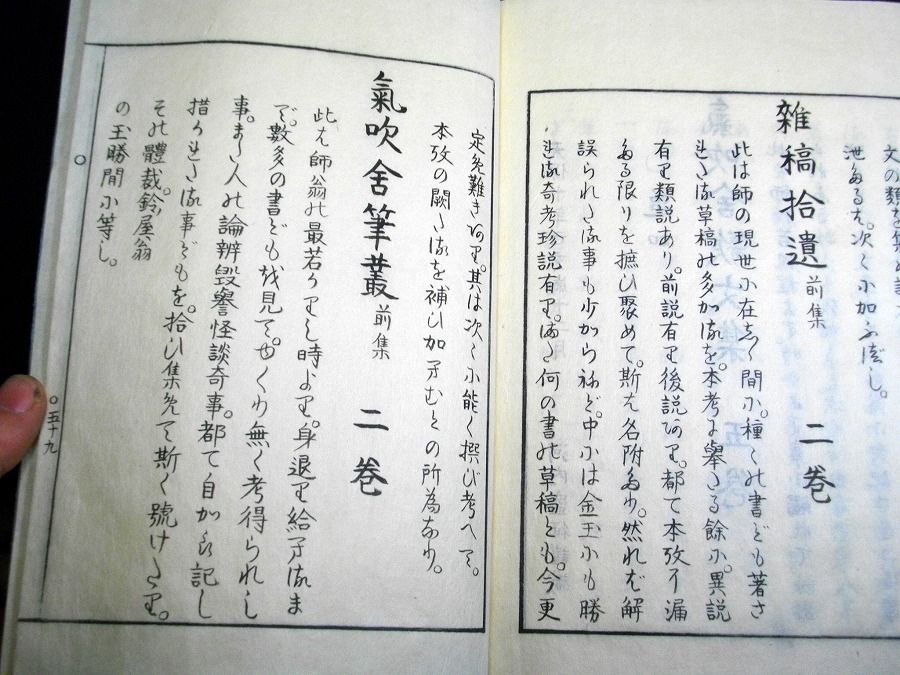 文の類を集め
泄たるは。次々に加ふべし。
雑稿拾遺 前集 二巻
此は師の現世に在しゝ間に。種々の書ども著さ
れたる草稿の多かるを。本考に挙たる餘に。異説
有り類説あり。前説有り後説あり。都て本攷に漏
たる限りを摭ひ聚めて。斯は名附たり。然れば解
誤られたる事も少からねど。中には金玉にも勝
れる奇考珍説有り。はた何の書の草稿とも。今更
定免難きあり。其は次々に能く撰び考へて。
本攷の闕たるを補ひ加へむとの所為なり。
氣吹舎筆叢 前集 二巻
此は師翁の最若かりし時より。身退り給ふるま
で。数多の書ども越見て。也くり無く考得られし
事。また人の論辨毀譽怪談奇事。都て自から記し
措かれたる事どもを。拾ひ集免て斯く號けたり。
その體裁。鈴屋翁
の玉勝間に等し。
○五十九